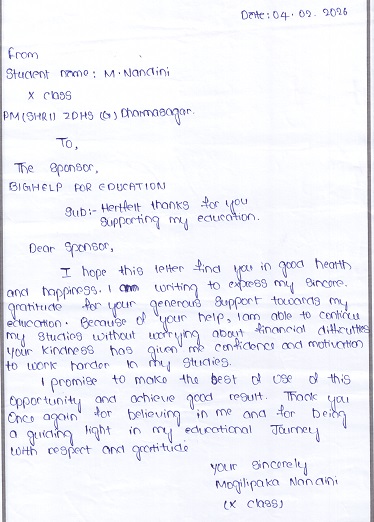 Date: 04. 02. 2026
From
Student name: M. Nandini
X class
PM(SHRI) ZDHS (G) Dharmasagar.
To,
The Sponsor,
BIGHELP FOR EDUCATION
Sub:- Hertfelt thanks for you
supporting my education.
Dear Sponsor,
I hope this letter find you in good health
and happiness. I am writing to express my sincere.
gratitude for your generous support towards my
education. Because of your help, I am able to continue
my studies without worrying about financial difficulties
your kindness has given me confidence and motivation
to work harder in my studies.
I promise to make the best of use of this
opportunity and achieve good result. Thank you
Once again for believing in me and for being
a guiding light in my educational Journey
with respect and gratitude
your sincerely
Mogilipaka Nandini
(X class)